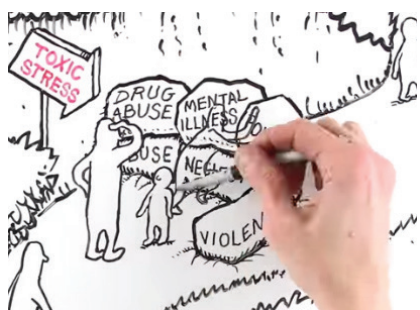 TOXIC
STRESS
DRUG
ABUSE
MENTAL
ILLNESS
BUSE
NEGL
VIOLEN